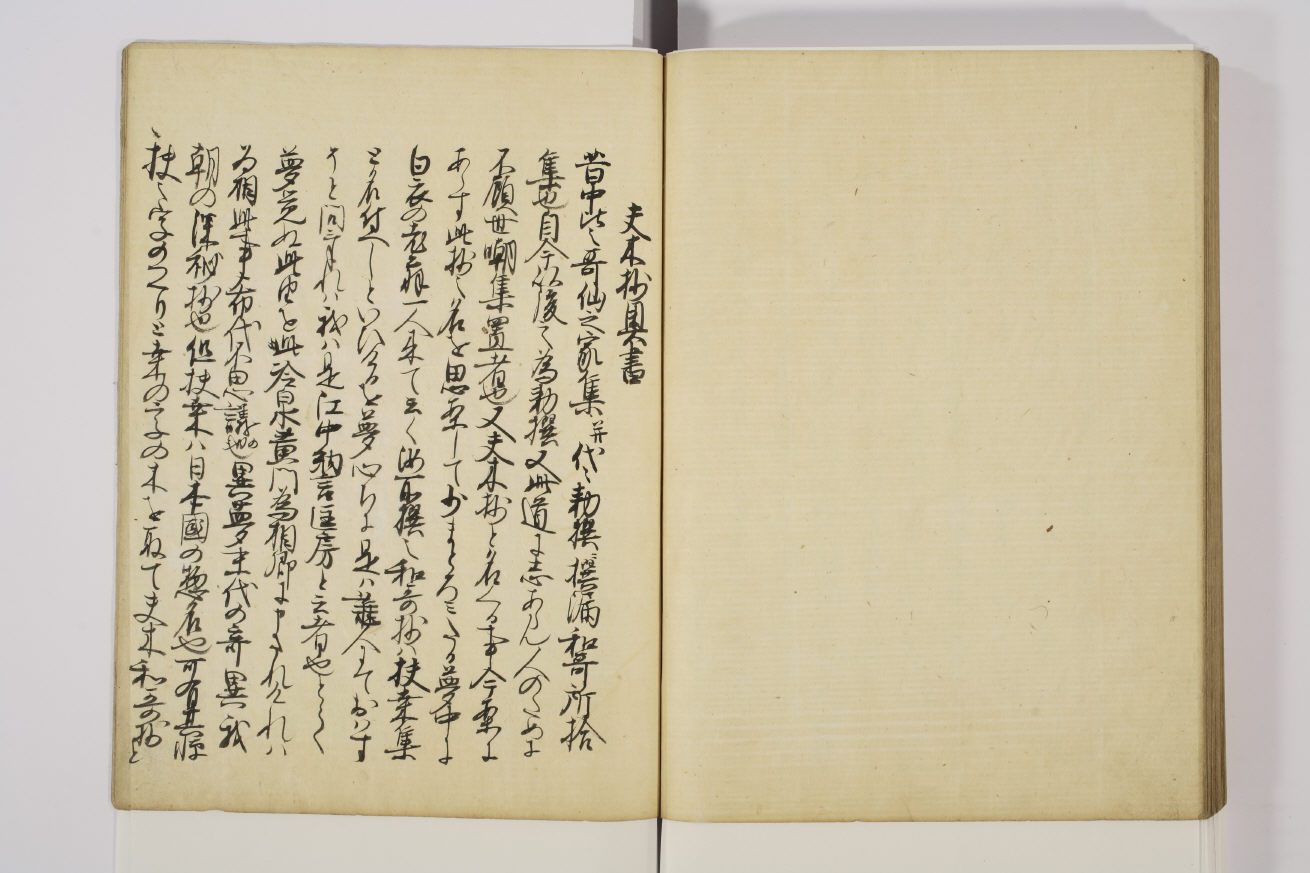 夫木抄奥書
昔中比之哥仙之家集并代々勅撰撰漏和哥所拾
集也自今以後て為勅撰又此道に志あらん人のために
不顧世嘲集置者也又夫木抄と名くる事今案に
あらす此抄之名を思案して少まとろミたる夢中に
白衣の老翁一人来て云く汝所撰之和哥抄ハ扶桑集
と名付へしといひけるを夢心ちに是ハ誰人にておはす
そと問けれハ我ハ是江中納言匡房と云者也とく
夢覚ぬ此由を此冷泉黄門為相卿に申されけれハ
為相此事希代不思議也異夢末代の奇異我
朝の深秘抄也但扶桑ハ日本國の惣名也可有其憚
扶之字のつくりと桒の字の木を取て夫木和哥抄と